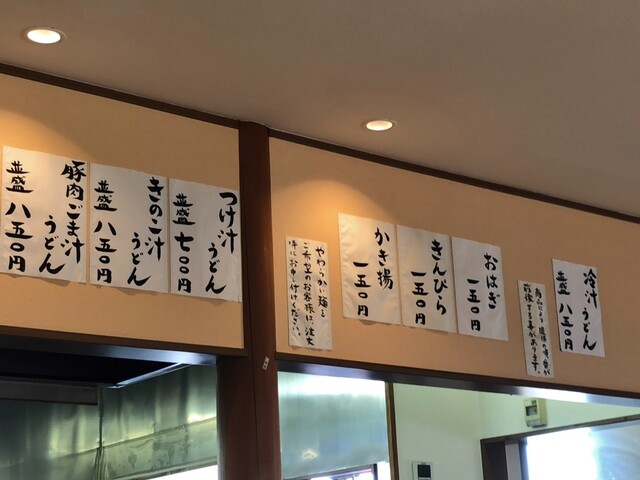 冷汁うどん
並盛 八五〇円
おはぎ
一五〇円
きんぴら
一五〇円
かき揚
一五〇円
やわらかい麺を
ご希望のお客様は、注文
時にお申し付けください。
つけ汁
うどん
並盛 七〇〇円
きのこ汁
うどん
並盛 八五〇円
豚肉ごま汁
うどん
並盛 八五〇円